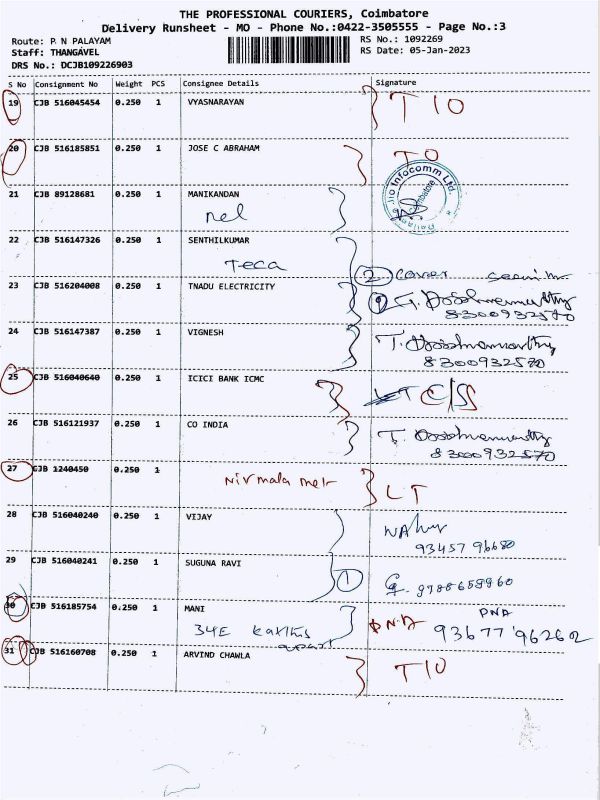 THE PROFESSIONAL COURIERS, Coimbatore
Delivery Runsheet - MO - Phone No.:0422-3505555 - Page No.:3
Route: P N PALAYAM
RS No.: 1092269
Staff: THANGAVEL
RS Date: 05-Jan-2023
DRS No.: DCJB109226903
S No Consignment No Weight PCS Consignee Details Signature
19 CJB 516045454 0.250 1 VYASNARAYAN T10
20 CJB 516185851 0.250 1 JOSE C ABRAHAM TO
Jio Infocomm Ltd.
Coimbatore
21 CJB 89128681 0.250 1 MANIKANDAN
nel
22 CJB 516147326 0.250 1 SENTHILKUMAR
Teca
2 cover
23 CJB 516204008 0.250 1 TNADU ELECTRICITY
8300932570
24 CJB 516147387 0.250 1 VIGNESH
8300932570
25 CJB 516040640 0.250 1 ICICI BANK ICMC
26 CJB 516121937 0.250 1 CO INDIA
8300932570
27 CJB 1240450 0.250 1
Nirmala LT
28 CJB 516040240 0.250 1 VIJAY
93457 96680
29 CJB 516040241 0.250 1 SUGUNA RAVI
1 9788658960
30 CJB 516185754 0.250 1 MANI
DNA PNA
34E 93677 96262
31 CJB 516160708 0.250 1 ARVIND CHAWLA T10